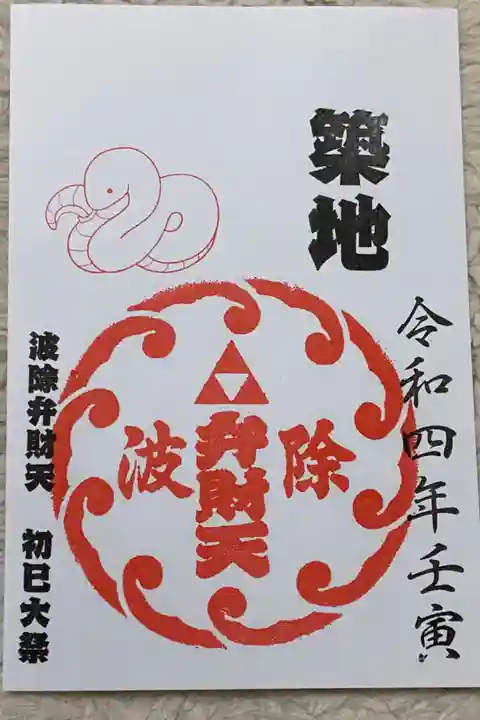 築地
令和四年壬寅
波除
弁財天
波除弁財天
初巳大祭